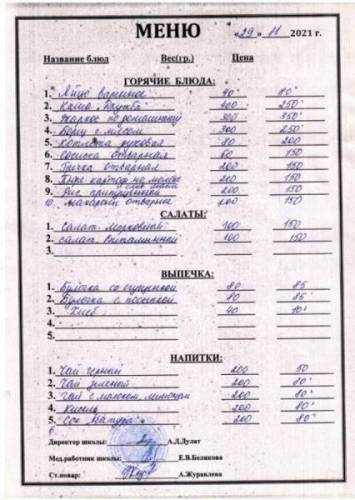 МЕНЮ
«29» 11 2021 г.
Название блюд Вес(гр.) Цена
ГОРЯЧИЕ БЛЮДА:
1. Яйцо вареное 40 80
2. Каша Дружба 200 250
3. Жаркое по домашнему 300 350
4. Борщ с мясом 300 250
5. Котлета духовая 80 200
6. Сосиска отварная 60 150
7. Гречка отварная 200 150
8. Пюре картоф на молоке 200 150
9. Рис припущенный 200 150
10. Макароны отварные 200 150
САЛАТЫ:
1. Салат Морковный 100 150
2. Салат Витаминный 100 150
3.
ВЫПЕЧКА:
1. Булочка со сгущенкой 80 85
2. Булочка с посыпкой 80 85
3. Хлеб 40 10
4.
5.
НАПИТКИ:
1. Чай черный 200 50
2. Чай зеленой 200 80
3. Чай с молоком, лимоном 200 80
4. Кисель 200 80
5. Сок Натура 200 80
6.
Директор школы: А.Д.Дулат
Мед.работник школы: Е.В.Беликова
Ст.повар: А.Журавлева